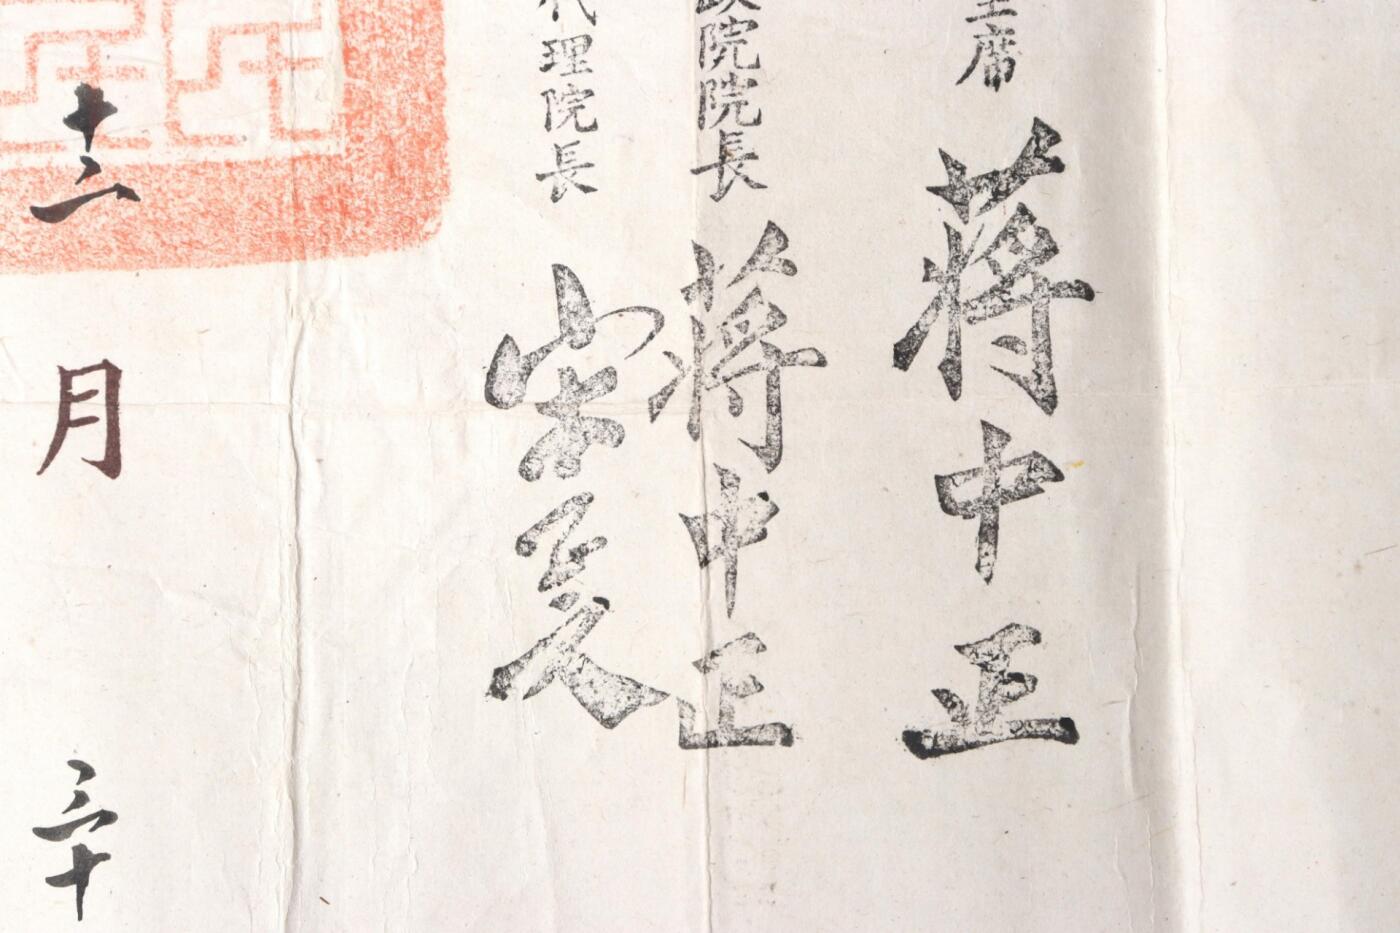 主席 蔣中正
政院院長 蔣中正
代理院長 宋子文
十二月三十